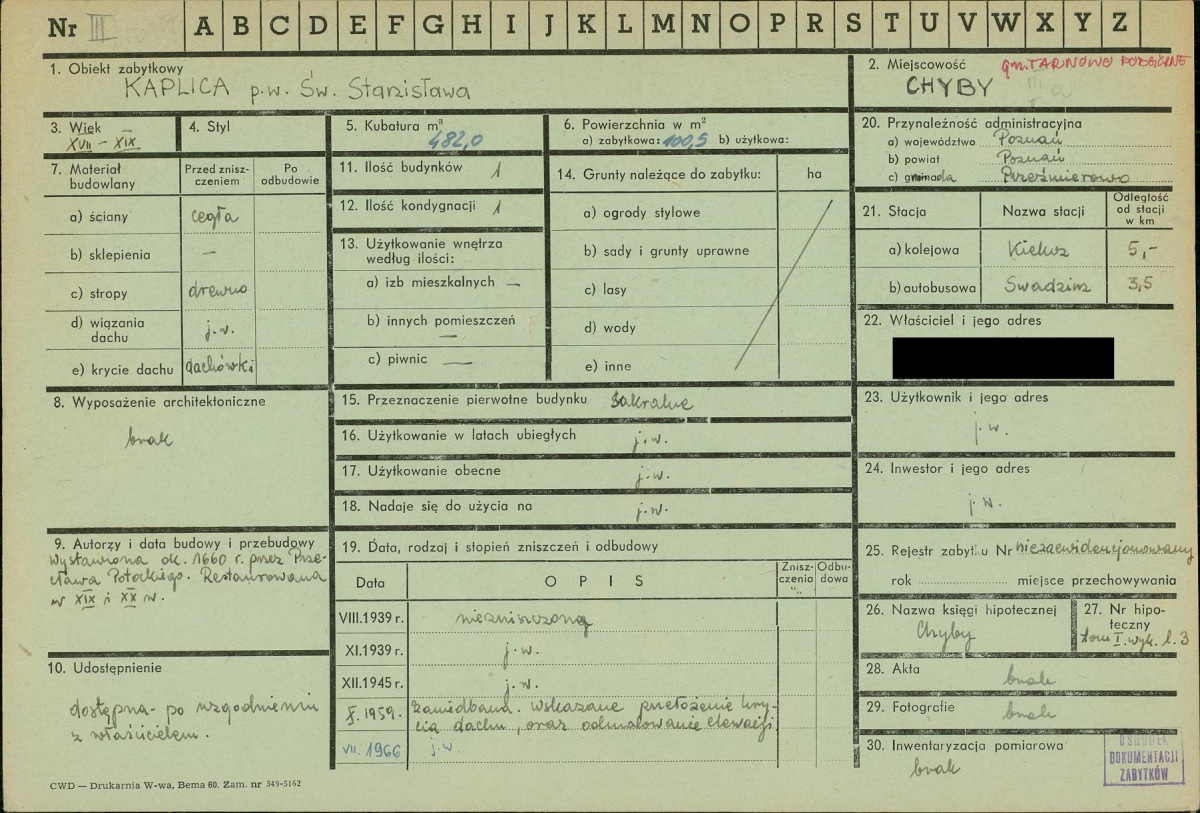 Nr III A B C D E F G H I J K L M N O P R S T U V W X Y Z
1. Obiekt zabytkowy
KAPLICA p.w. Św. Stanisława
2. Miejscowość gm. TARNOWO PODGÓRNE
CHYBY
3. Wiek
XVII – XIX
4. Styl
5. Kubatura m³
482,0
6. Powierzchnia w m²
a) zabytkowa: 100,5 b) użytkowa:
7. Materiał budowlany
Przed zniszczeniem
Po odbudowie
a) ściany cegła
b) sklepienia —
c) stropy drewno
d) wiązania dachu j.w.
e) krycie dachu dachówki
8. Wyposażenie architektoniczne
brak
9. Autorzy i data budowy i przebudowy
Wystawiona ok. 1660 r. przez Prze-
cława Potockiego. Restaurowana
w XIX i XX w.
10. Udostępnienie
dostępna - po uzgodnieniu
z właścicielem.
11. Ilość budynków 1
12. Ilość kondygnacji 1
13. Użytkowanie wnętrza
według ilości:
a) izb mieszkalnych —
b) innych pomieszczeń
—
c) piwnic —
14. Grunty należące do zabytku: ha
a) ogrody stylowe
b) sady i grunty uprawne
c) lasy
d) wody
e) inne
15. Przeznaczenie pierwotne budynku Sakralne
16. Użytkowanie w latach ubiegłych j.w.
17. Użytkowanie obecne j.w.
18. Nadaje się do użycia na j.w.
19. Data, rodzaj i stopień zniszczeń i odbudowy
Data OPIS Zniszczenia % Odbudowa
VIII.1939 r. niezniszczona
XI.1939 r. j.w.
XII.1945 r. j.w.
X. 1959. zaniedbana. Wskazane przełożenie kry-
cia dachu, oraz odmalowanie elewacji
VII. 1966 j.w.
20. Przynależność administracyjna
a) województwo Poznań
b) powiat Poznań
c) gromada Przeźmierowo
21. Stacja Nazwa stacji Odległość od stacji w km
a) kolejowa Kiekrz 5,-
b) autobusowa Swadzim 3,5
22. Właściciel i jego adres
23. Użytkownik i jego adres
j.w.
24. Inwestor i jego adres
j.w.
25. Rejestr zabytku Nr niezaewidencjonowany
rok miejsce przechowywania
26. Nazwa księgi hipotecznej
Chyby
27. Nr hipoteczny
tom I. wyk. l. 3
28. Akta
brak
29. Fotografie
brak
30. Inwentaryzacja pomiarowa
brak
OŚRODEK
DOKUMENTACJI
ZABYTKÓW
CWD — Drukarnia W-wa, Bema 60. Zam. nr 349-5162